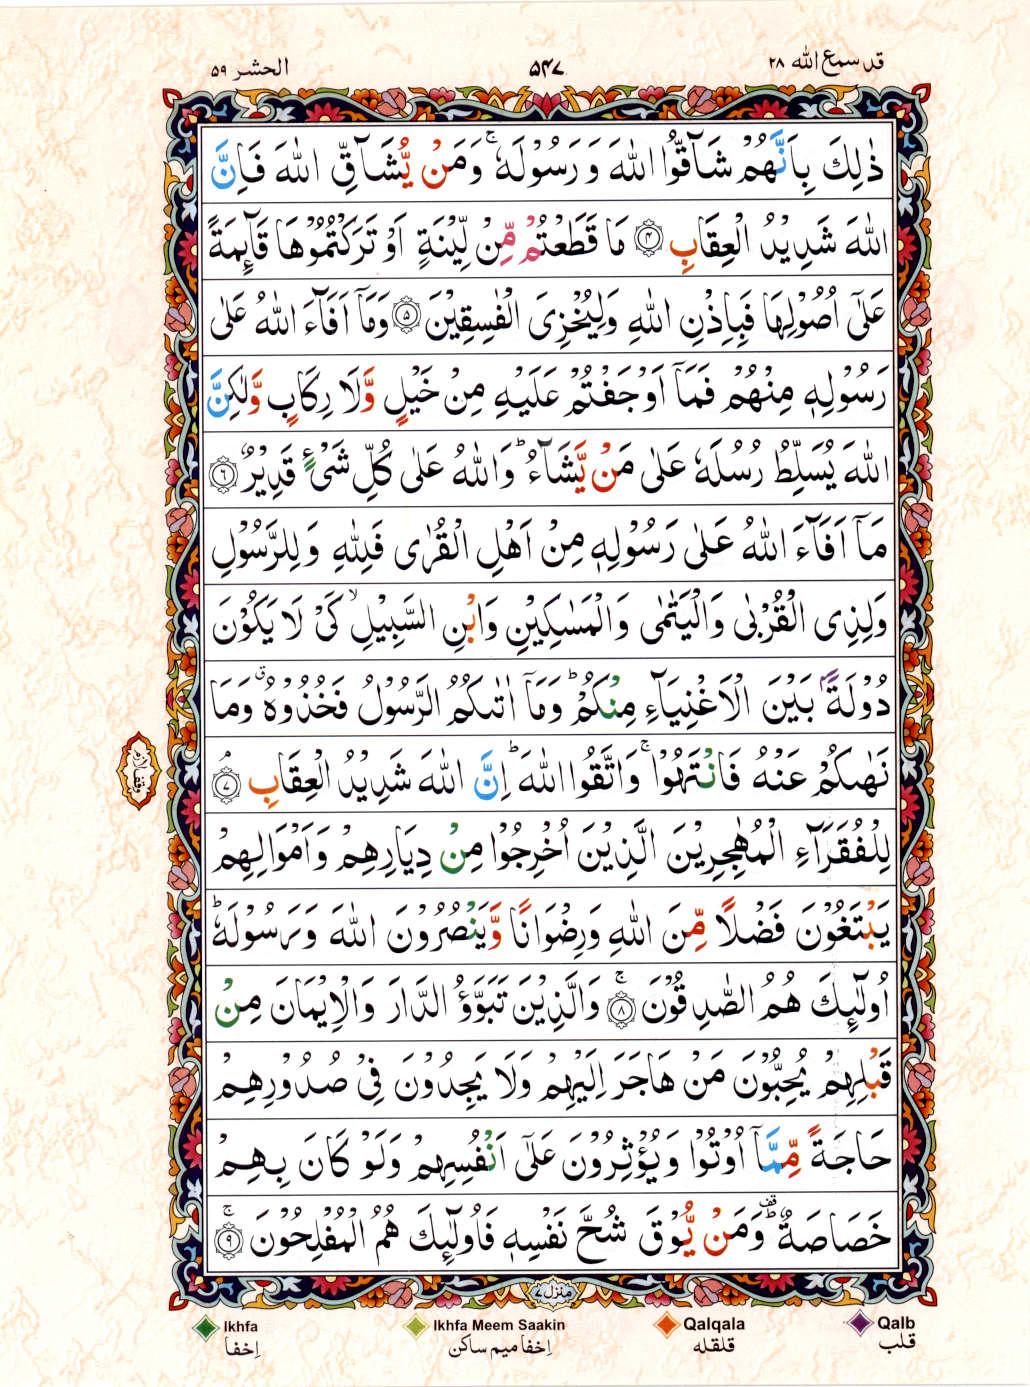 قد سمع الله ٢٨
٥٤٧
الحشر ٥٩
ذٰلِكَ بِاَنَّهُمْ شَآقُّوا اللّٰهَ وَ رَسُوْلَهٗ ۚ وَمَنْ يُّشَآقِّ اللّٰهَ فَاِنَّ
اللّٰهَ شَدِيْدُ الْعِقَابِ ۝۴ مَا قَطَعْتُمْ مِّنْ لِّيْنَةٍ اَوْ تَرَكْتُمُوْهَا قَآئِمَةً
عَلٰٓى اُصُوْلِهَا فَبِاِذْنِ اللّٰهِ وَلِيُخْزِيَ الْفٰسِقِيْنَ ۝۵ وَمَآ اَفَآءَ اللّٰهُ عَلٰى
رَسُوْلِهٖ مِنْهُمْ فَمَآ اَوْجَفْتُمْ عَلَيْهِ مِنْ خَيْلٍ وَّلَا رِكَابٍ وَّلٰكِنَّ
اللّٰهَ يُسَلِّطُ رُسُلَهٗ عَلٰى مَنْ يَّشَآءُ ؕ وَاللّٰهُ عَلٰى كُلِّ شَىْءٍ قَدِيْرٌ ۝۶
مَآ اَفَآءَ اللّٰهُ عَلٰى رَسُوْلِهٖ مِنْ اَهْلِ الْقُرٰى فَلِلّٰهِ وَلِلرَّسُوْلِ
وَلِذِى الْقُرْبٰى وَالْيَتٰمٰى وَالْمَسٰكِيْنِ وَابْنِ السَّبِيْلِ ۙ كَىْ لَا يَكُوْنَ
دُوْلَةًۢ بَيْنَ الْاَغْنِيَآءِ مِنْكُمْ ؕ وَمَآ اٰتٰىكُمُ الرَّسُوْلُ فَخُذُوْهُ ۗ وَمَا
نَهٰىكُمْ عَنْهُ فَانْتَهُوْا ۚ وَاتَّقُوا اللّٰهَ ؕ اِنَّ اللّٰهَ شَدِيْدُ الْعِقَابِ ۘ ۝۷
وقف لازم
لِلْفُقَرَآءِ الْمُهٰجِرِيْنَ الَّذِيْنَ اُخْرِجُوْا مِنْ دِيَارِهِمْ وَاَمْوَالِهِمْ
يَبْتَغُوْنَ فَضْلًا مِّنَ اللّٰهِ وَرِضْوَانًا وَّيَنْصُرُوْنَ اللّٰهَ وَرَسُوْلَهٗ ؕ
اُولٰٓئِكَ هُمُ الصّٰدِقُوْنَ ۚ ۝۸ وَالَّذِيْنَ تَبَوَّؤُ الدَّارَ وَالْاِيْمَانَ مِنْ
قَبْلِهِمْ يُحِبُّوْنَ مَنْ هَاجَرَ اِلَيْهِمْ وَلَا يَجِدُوْنَ فِىْ صُدُوْرِهِمْ
حَاجَةً مِّمَّآ اُوْتُوْا وَيُؤْثِرُوْنَ عَلٰٓى اَنْفُسِهِمْ وَلَوْ كَانَ بِهِمْ
خَصَاصَةٌ ؕ قف وَمَنْ يُّوْقَ شُحَّ نَفْسِهٖ فَاُولٰٓئِكَ هُمُ الْمُفْلِحُوْنَ ۚ ۝۹
منزل ٧
Ikhfa
Ikhfa Meem Saakin
Qalqala
Qalb
اِخفا
اِخفا میم ساکن
قلقله
قلب